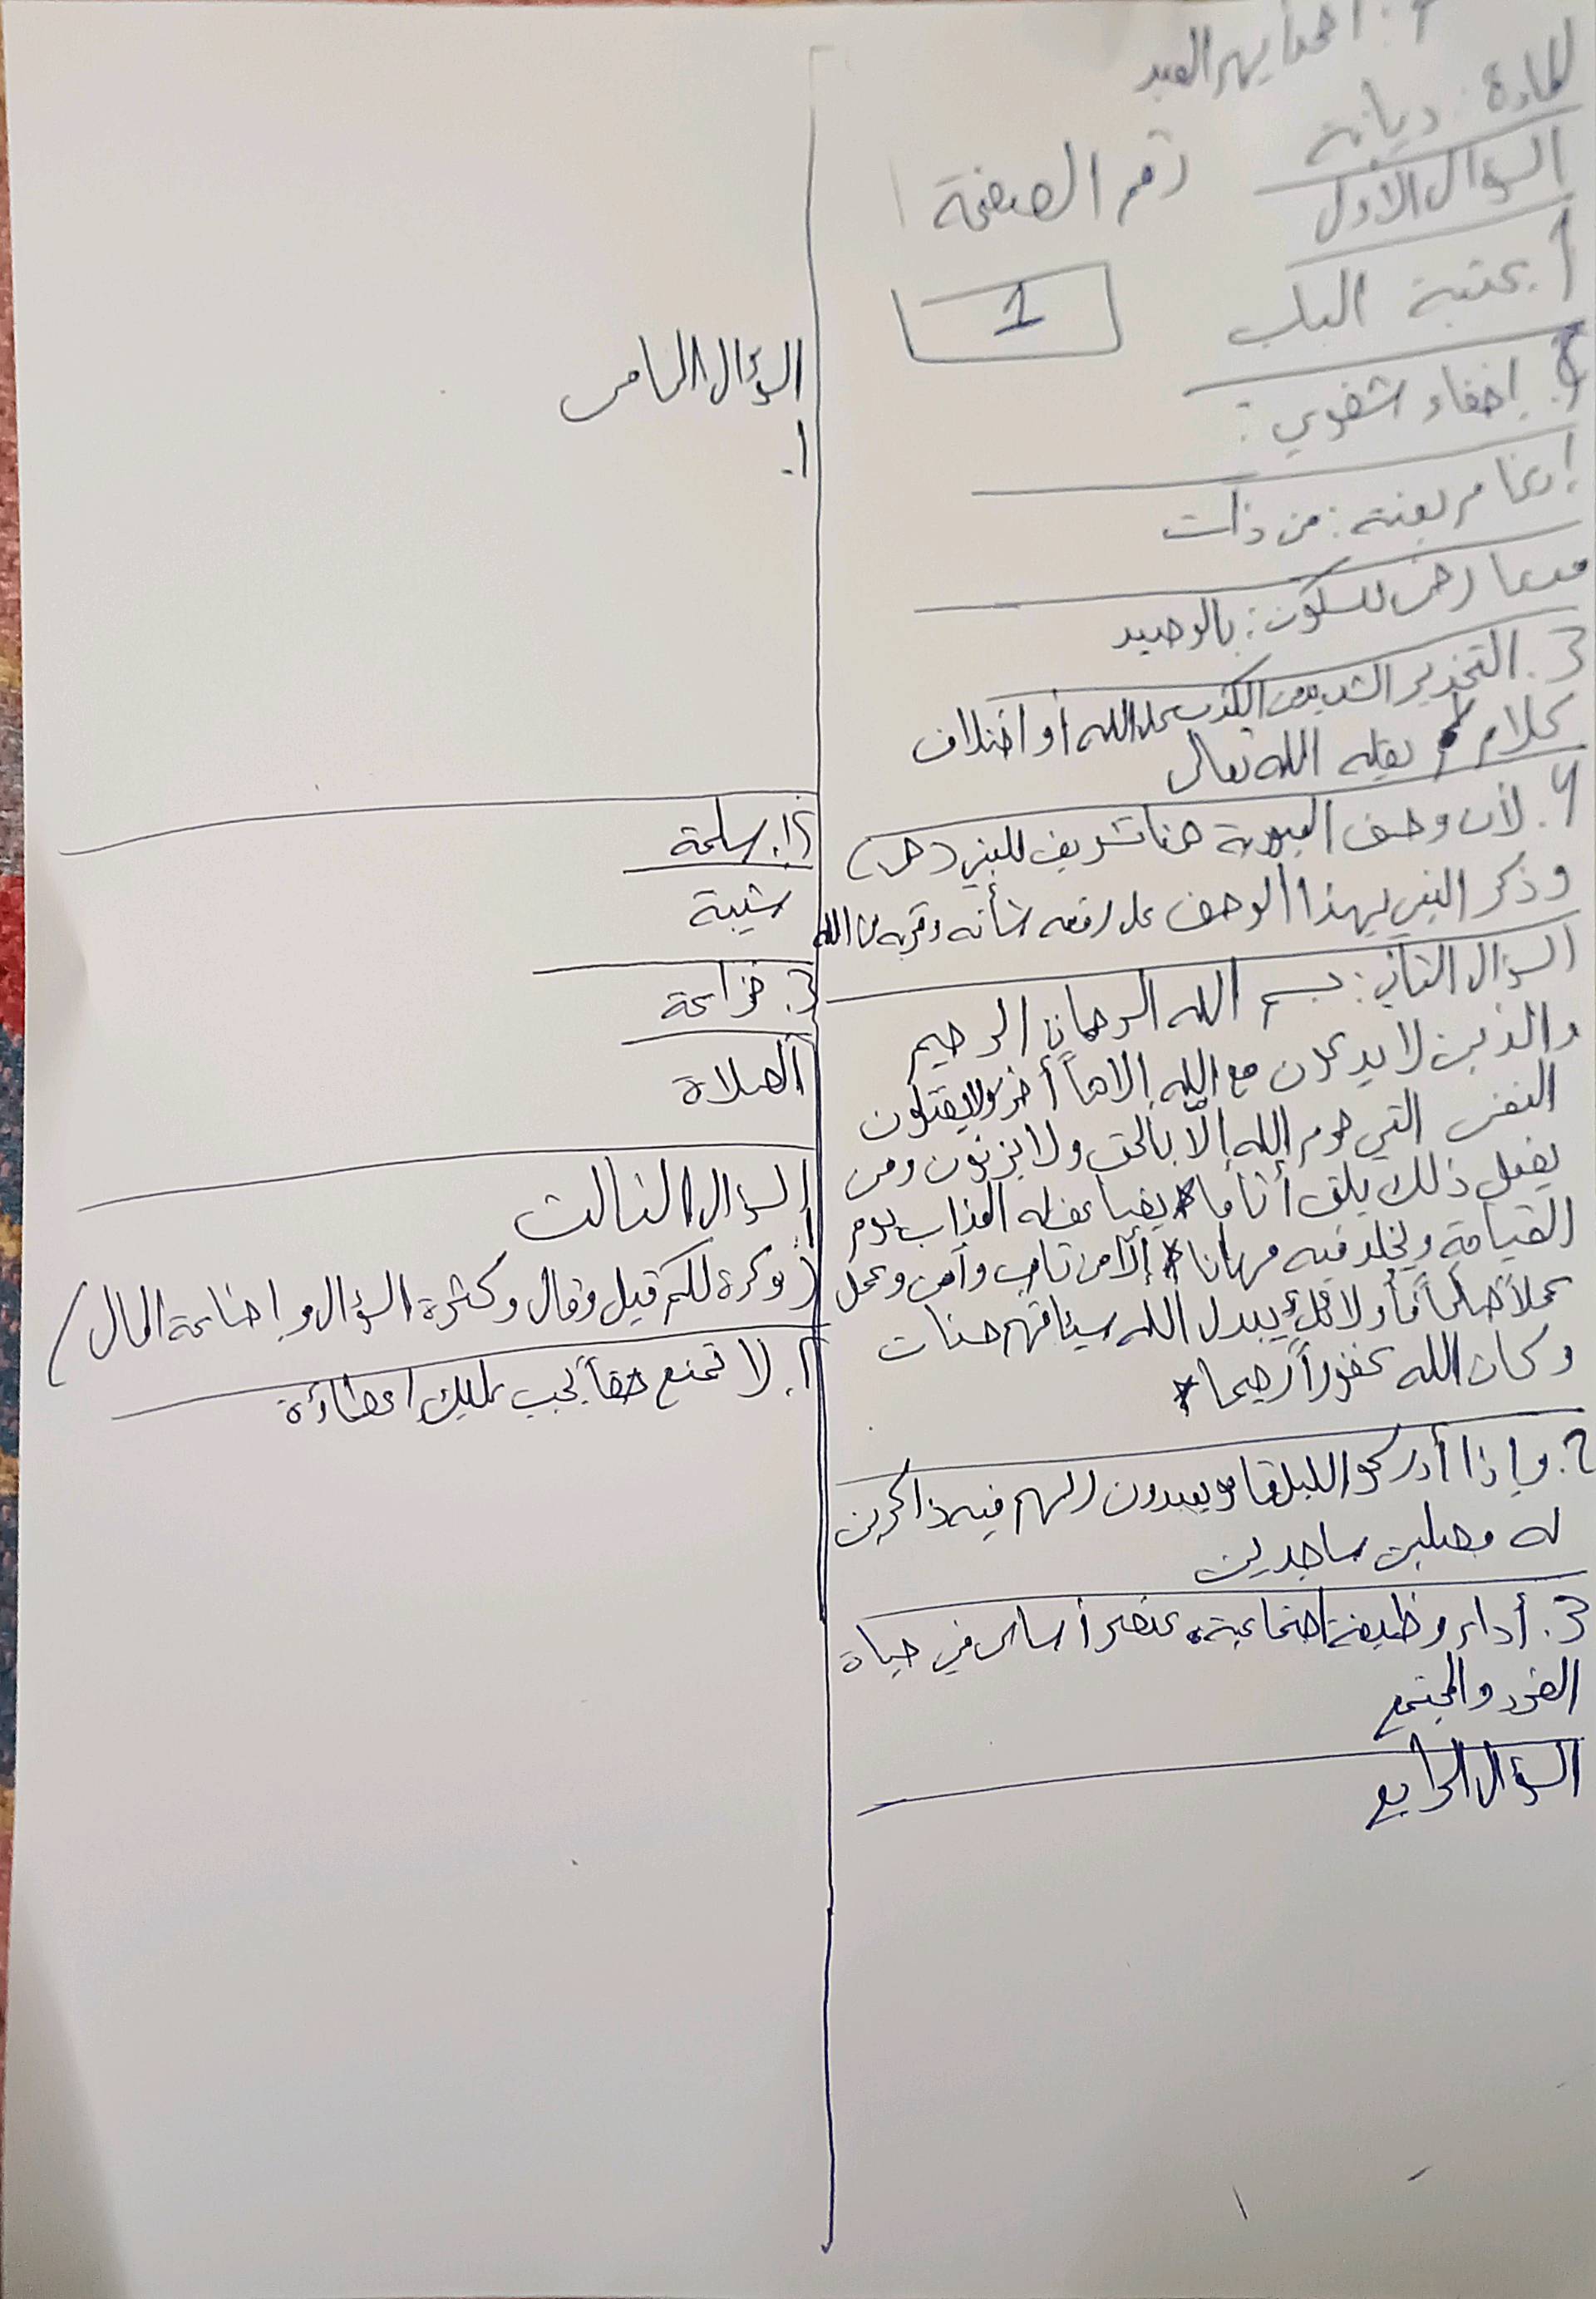 المادة: ديانة
السؤال الأول
رقم الصفحة
1
1. عتبة الباب
2. إخفاء شفوي:
إدغام بغنة: من ذات
مدعا رض للسكون: بالوصيد
3. التحذير الشديد من الكذب على الله أو اختلاف
كلام لم يقله الله تعالى
4. لأن وصف العبودية هنا تشريف للنبي (ص)
وذكر النبي بهذا الوصف على رفعه شأنه وقربه من الله
السؤال الثاني: بسم الله الرحمان الرحيم
والذين لا يدعون مع الله إلاهاً أخر ولا يقتلون
النفس التي حرم الله إلّا بالحق ولا يزنون ومن
يفعل ذلك يلق أثاما * يضاعف له العذاب يوم
القيامة ويخلد فيه مهانا * إلّا من تاب وآمن وعمل
عملاً صالحاً فأولائك يبدل الله سيئاتهم حسنات
وكان الله غفوراً رحيما *
2. وإذا أدركهوا الليل قاموا يعبدون ربهم فيه ذاكرين
له مصلين ساجدين
3. أداء وظيفة اجتماعية. عنصر أساسي في حياة
الفرد والمجتمع
السؤال الرابع
السؤال الخامس
1.
2. سلمة
شيبة
3. خزاعة
الصلاة
السؤال الثالث
1.
(وكرة لكم قيل وقال وكثرة السؤال و إضاعة المال)
2. لا تمنع حقاً يجب عليك إعطاؤة